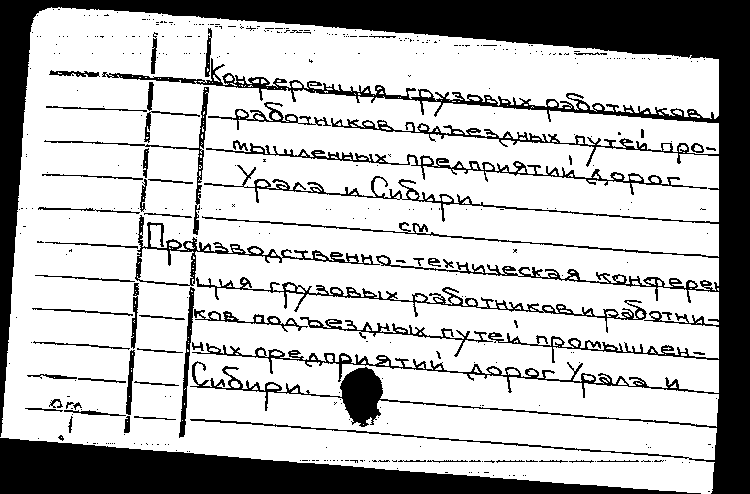 Конференция грузовых работников и
работников подъездных путей про-
мышленных предприятий дорог
Урала и Сибири.
см.
Производственно-техническая конферен
ция грузовых работников и работни-
ков подъездных путей промышлен-
ных предприятий дорог Урала и
Сибири.